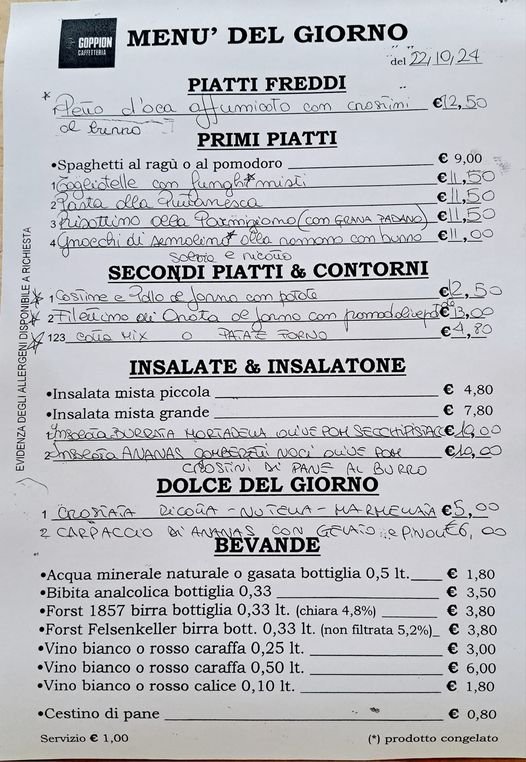 GOPPION
CAFFETTERIA
MENU' DEL GIORNO
del 22/10/24
PIATTI FREDDI
* Petto d'oca affumicato con crostini € 12,50
al burro
PRIMI PIATTI
•Spaghetti al ragù o al pomodoro € 9,00
1 Tagliatelle con funghi* misti € 11,50
2 Pasta alla Puttanesca € 11,50
3 Risottino alla Parmigiana (con GRANA PADANO) € 11,50
4 Gnocchi di semolino* alla romana con burro € 11,00
salvia e ricotta
SECONDI PIATTI & CONTORNI
* 1 Costine e Pollo al forno con patate € 12,50
* 2 Filettino di Orata al forno con pomodoli € 13,00
* 123 COTTA MIX O PATATE FORNO € 4,80
INSALATE & INSALATONE
•Insalata mista piccola € 4,80
•Insalata mista grande € 7,80
1 INSALATA BURRATA MORTADELLA OLIVE POM SECCHI PISTACC € 10,00
2 INSALATA ANANAS GAMBERETTI NOCI OLIVE POM € 10,00
CROSTINI DI PANE AL BURRO
DOLCE DEL GIORNO
1 CROSTATA RICOTTA - NUTELLA - MARMELLATA € 5,00
2 CARPACCIO DI ANANAS CON GELATO e PINOLI € 6,00
BEVANDE
•Acqua minerale naturale o gasata bottiglia 0,5 lt. € 1,80
•Bibita analcolica bottiglia 0,33 € 3,50
•Forst 1857 birra bottiglia 0,33 lt. (chiara 4,8%) € 3,80
•Forst Felsenkeller birra bott. 0,33 lt. (non filtrata 5,2%) € 3,80
•Vino bianco o rosso caraffa 0,25 lt. € 3,00
•Vino bianco o rosso caraffa 0,50 lt. € 6,00
•Vino bianco o rosso calice 0,10 lt. € 1,80
•Cestino di pane € 0,80
Servizio € 1,00 (*) prodotto congelato
EVIDENZA DEGLI ALLERGENI DISPONIBILE A RICHIESTA